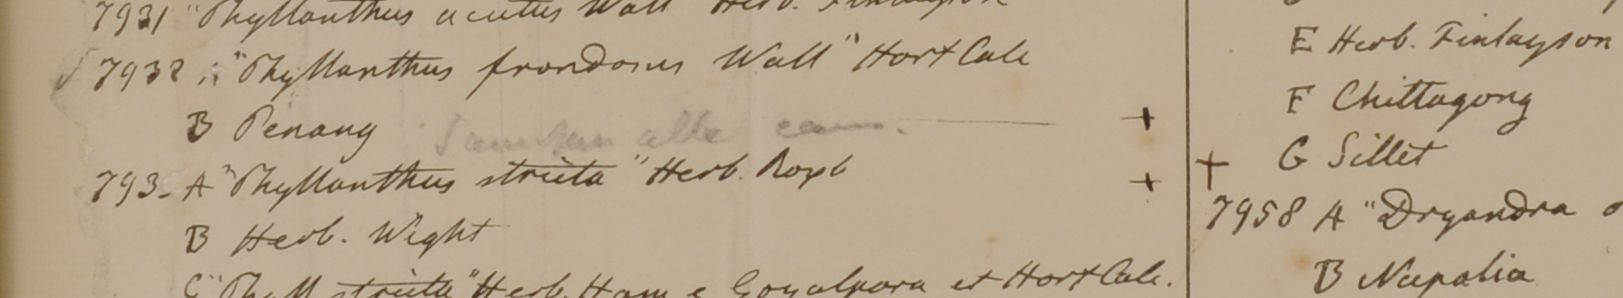 7931 "Phyllanthus acutus Wall Herb. Finlayson
7932 A "Phyllanthus frondosus Wall" Hort Calc
B Penang +
793- A "Phyllanthus stricta" Herb. Roxb +
B Herb. Wight
C "Phyll stricta" Herb. Ham e Goyalpara et Hort Calc.
E Herb. Finlayson
F Chittagong
+ G Sillet
7958 A "Dryandra
B Napalia